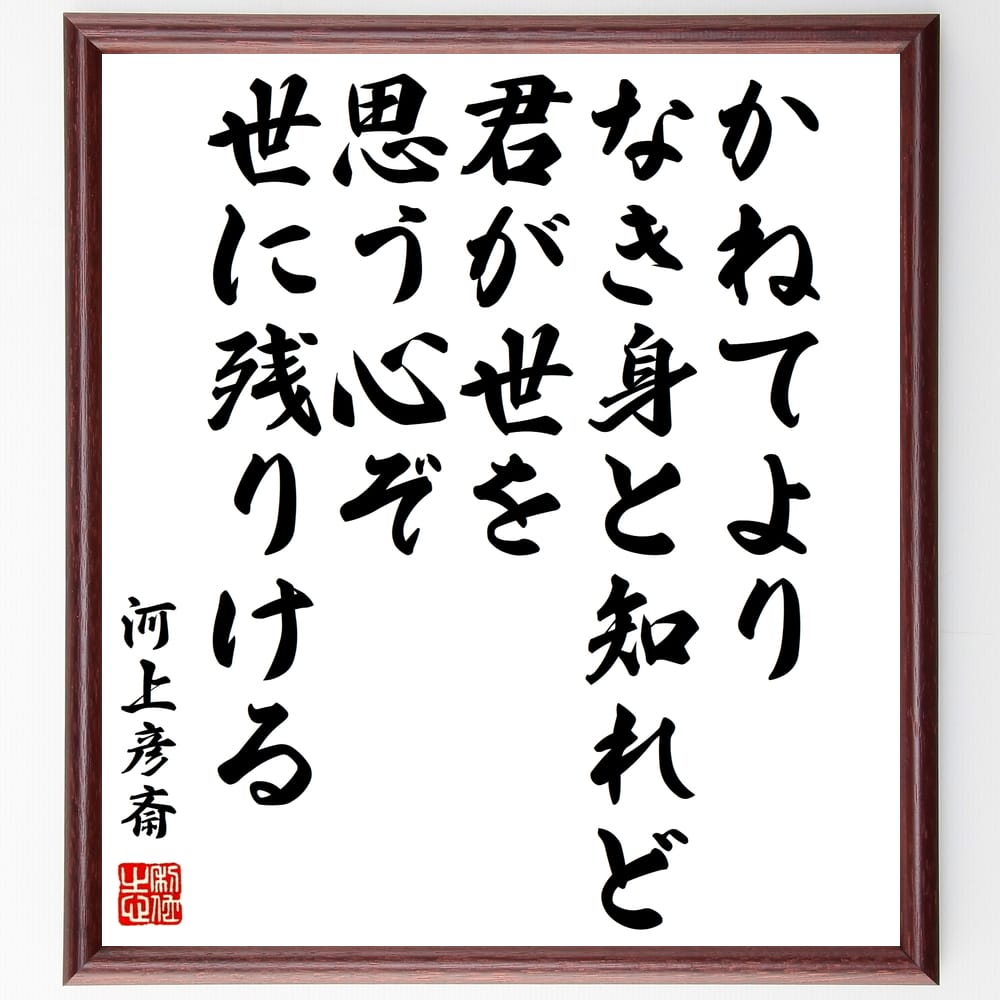 かねてより
なき身と知れど
君が世を
思う心ぞ
世に残りける
河上彦斎